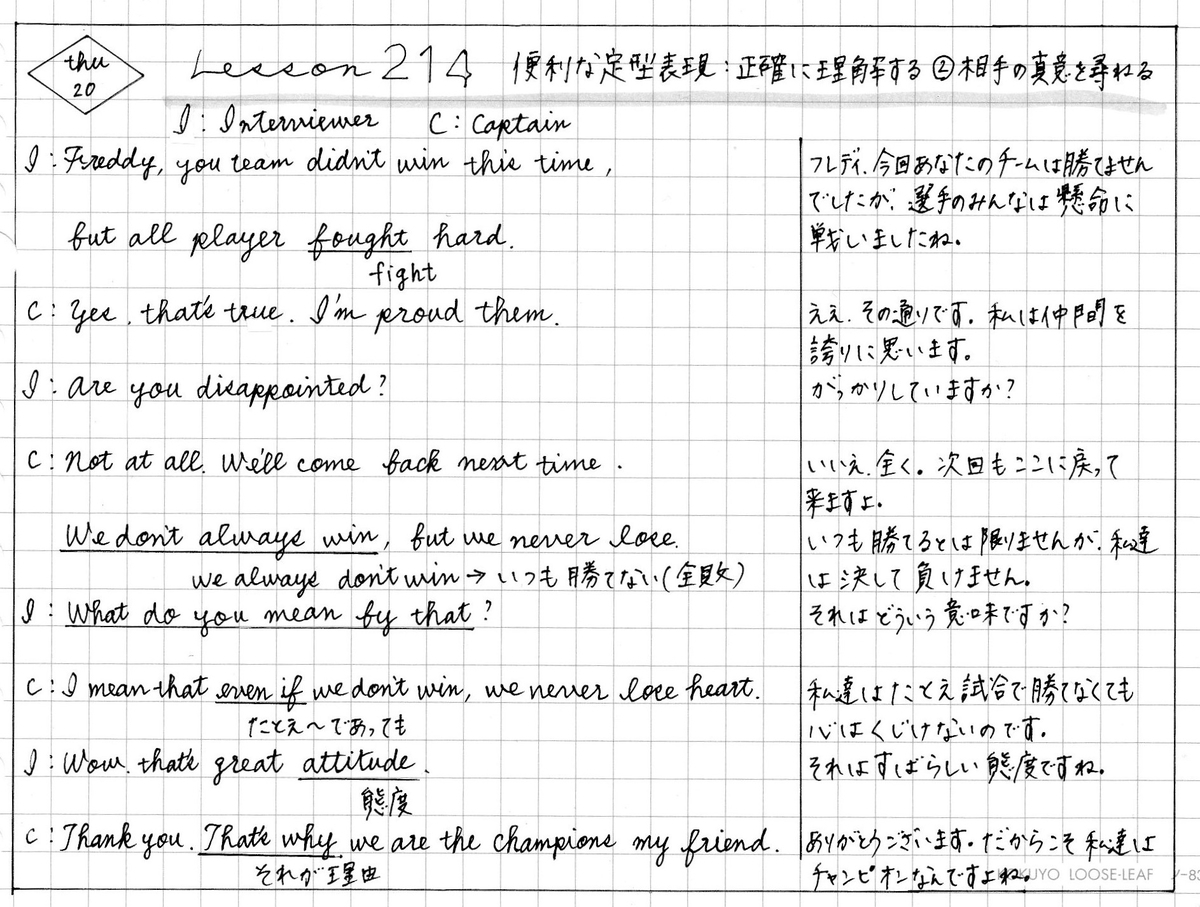 thu
20
Lesson 214 便利な定型表現:正確に理解する ②相手の真意を尋ねる
I : Interviewer C : Captain
I : Freddy, you team didn't win this time,
フレディ、今回あなたのチームは勝てません
でしたが、選手のみんなは懸命に
but all player fought hard.
戦いましたね。
fight
C : Yes, that's true. I'm proud them.
ええ、その通りです。私は仲間を
誇りに思います。
I : Are you disappointed?
がっかりしていますか?
C : Not at all. We'll come back next time.
いいえ、全く。次回もここに戻って
来ますよ。
We don't always win, but we never lose.
いつも勝てるとは限りませんが、私達
we always don't win → いつも勝てない(全敗)
は決して負けません。
I : What do you mean by that?
それはどういう意味ですか?
C : I mean that even if we don't win, we never lose heart.
私達はたとえ試合で勝てなくても
たとえ〜であっても
心はくじけないのです。
I : Wow, that's great attitude.
それはすばらしい態度ですね。
態度
C : Thank you. That's why we are the champions my friend.
ありがとうございます。だからこそ私達は
それが理由
チャンピオンなんですよね。
KOKUYO LOOSE-LEAF ノ-83